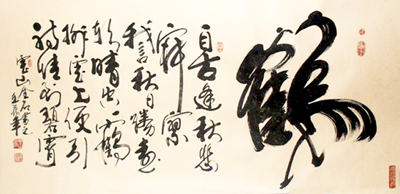 鶴
自古逢秋悲
寂寥
我言秋日勝春
朝晴空一鶴
排雲上便引
詩情到碧霄